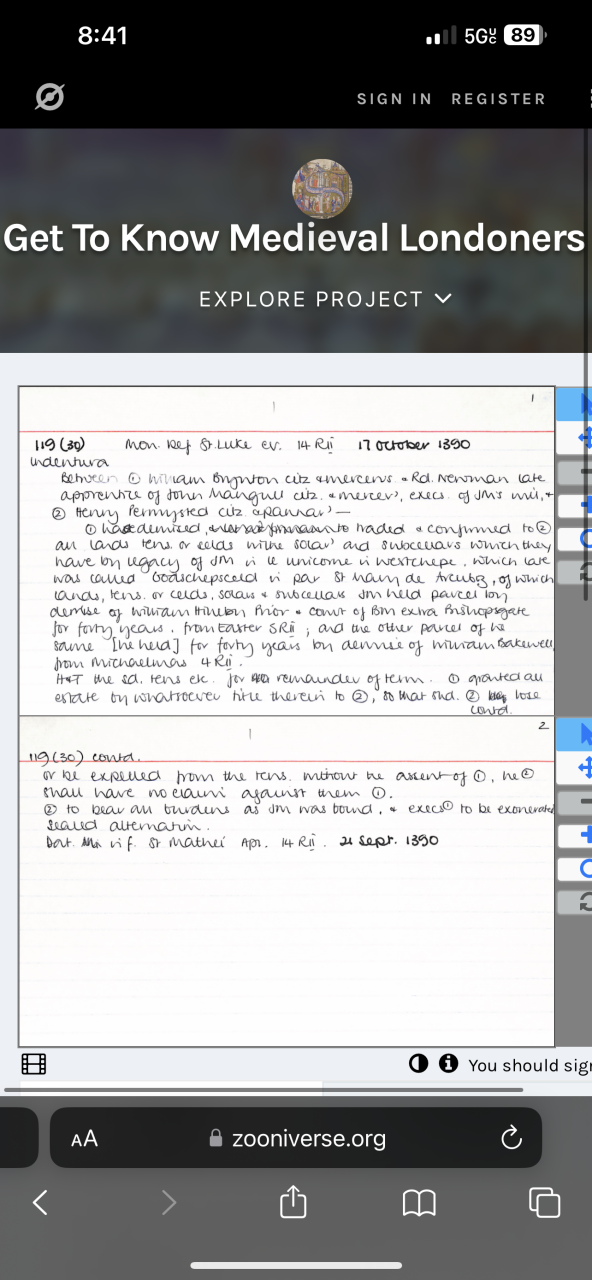 8:41
5G 89
SIGN IN REGISTER
Get To Know Medieval Londoners
EXPLORE PROJECT
1
119 (30) Mon. bef St. Luke ev. 14 Rii 17 October 1390
indentura
Between ① William Brynton citz & mercers & Rd. Newman late
apprentice of John Mangull citz. & mercer, execs. of JM's will, &
② Henry Permysted citz. & —
① had demised, traded & confirmed to ②
all lands tens. or celds with solars and subcellars which they
have by legacy of JM in le unicorne in Westchepe, which late
was called Godschepsceld in par St Mary de Arcubz, of which
lands, tens. or celds, solars & subcellars JM held parcel by
demise of William Prior & convt of BM extra Bishopsgate
for forty years, from Easter 5Rii; and the other parcel of the
same [he held] for forty years by demise of William Bakewell
from Michaelmas 4 Rii.
H&T the sd. tens etc. for remainder of term. ① granted all
estate by whatsoever title therein to ②, so that shd. ② lose
contd.
2
119 (30) contd.
or be expelled from the tens. without the assent of ①, he ②
shall have no claim against them ①.
② to bear all burdens as JM was bound, & execs ① to be exonerated
Sealed alternatim.
Dat. in f. St Mathei Apr. 14 Rii. 21 Sept. 1390
You should sig
AA zooniverse.org